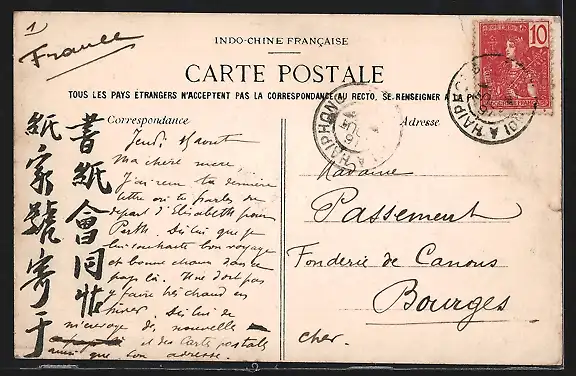 1
France
INDO-CHINE FRANÇAISE
CARTE POSTALE
TOUS LES PAYS ÉTRANGERS N'ACCEPTENT PAS LA CORRESPONDANCE AU RECTO, SE RENSEIGNER A LA
10
HAIPHONG
Correspondance
Adresse
Jeudi 15 aout
Ma chère mere,
J'ai reçu ta dernière
lettre où tu parles du
départ d'Elisabeth pour
Perth. Dis lui que je
lui souhaite bon voyage
et bonne chance dans ce
pays là. Il ne doit pas
y faire très chaud en
hiver. Dis lui de
m'envoyer des nouvelles
et des Carte postale
ainsi que son adresse.
Madame
Passement
Fonderie de Canons
Bourges
Cher.
書紙會同帖
紙家號寄于